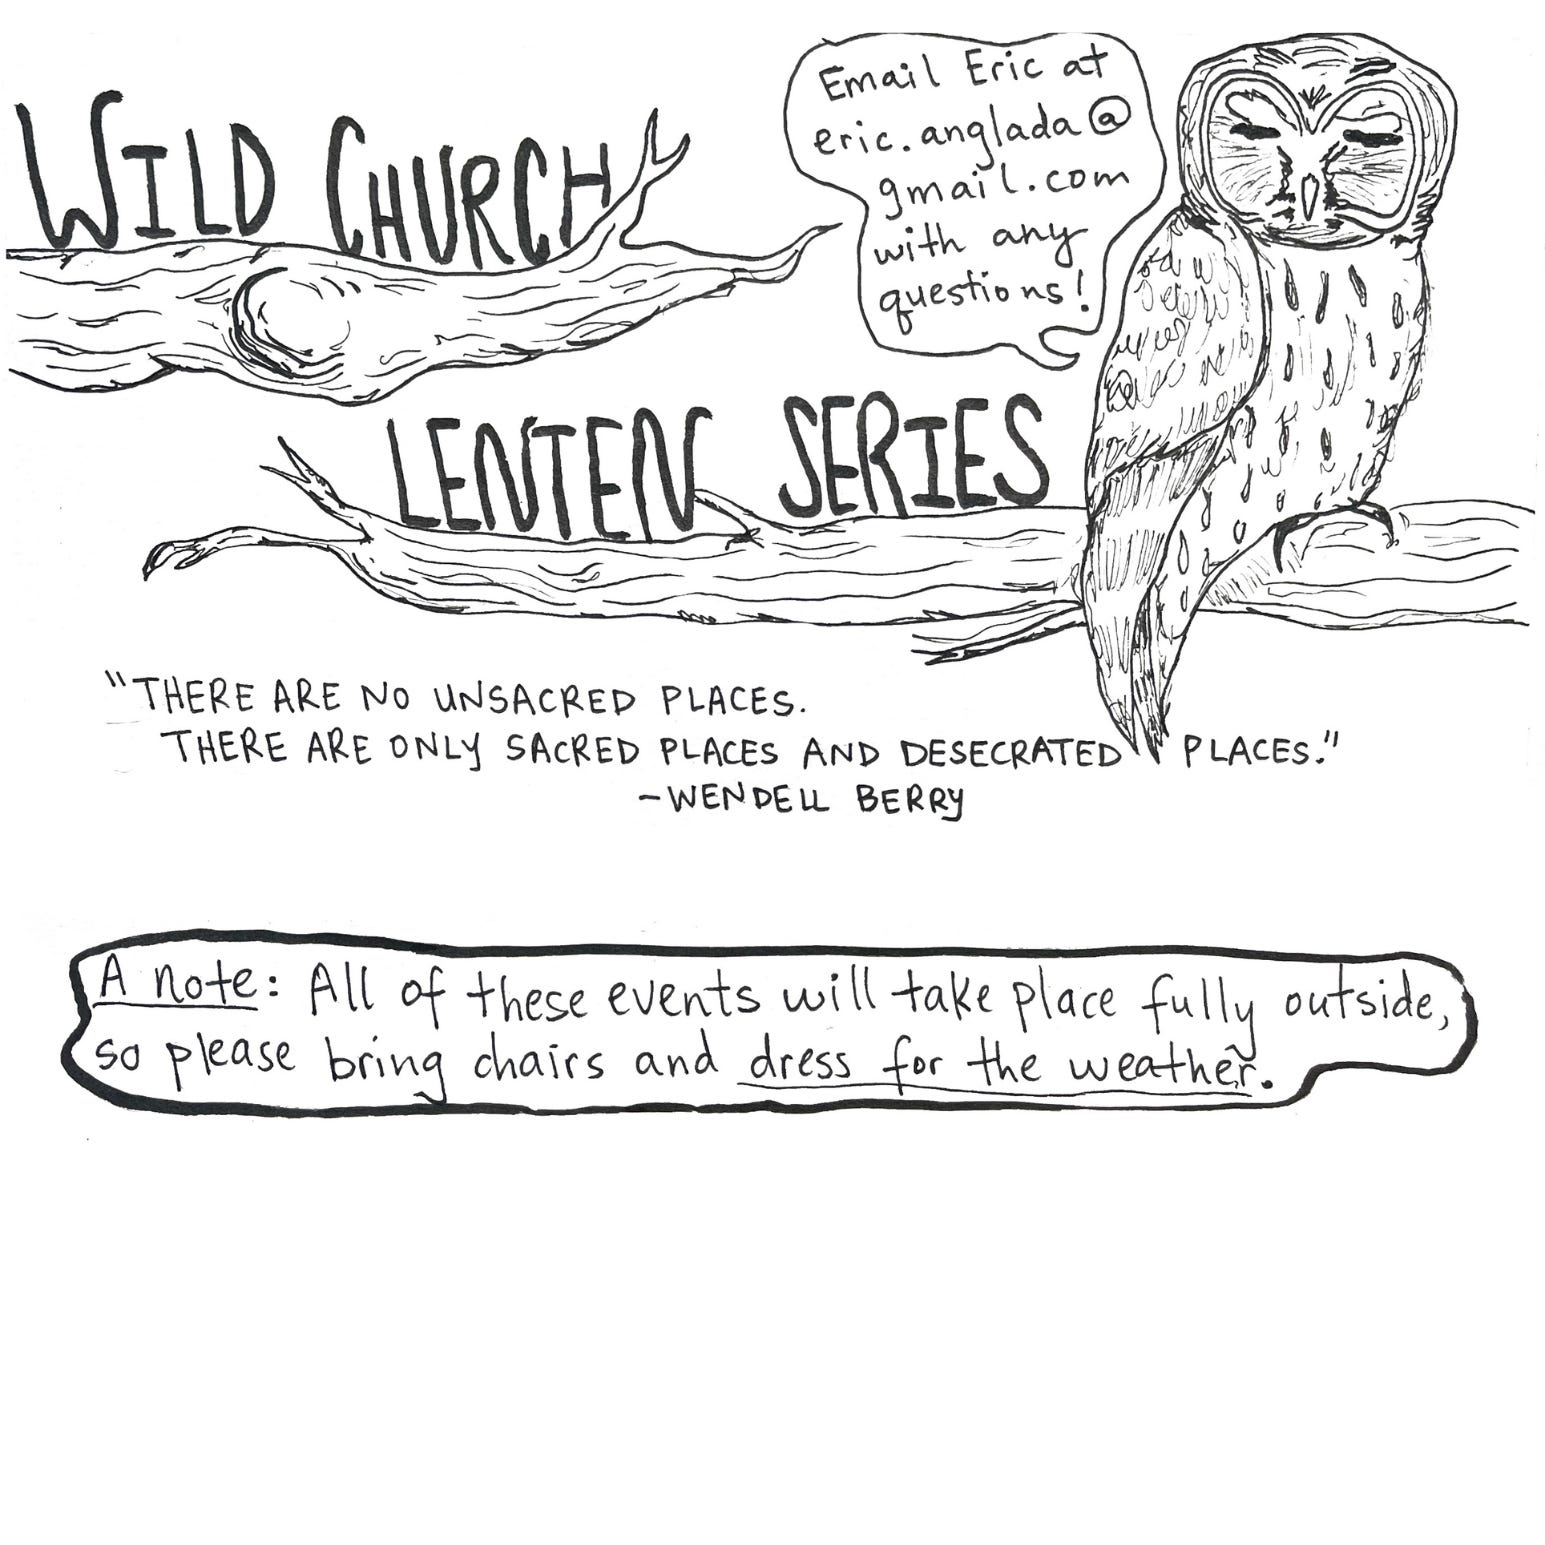 WILD CHURCH
Email Eric at
eric.anglada@
gmail.com
with any
questions!
LENTEN SERIES
"THERE ARE NO UNSACRED PLACES.
THERE ARE ONLY SACRED PLACES AND DESECRATED PLACES."
-WENDELL BERRY
A note: All of these events will take place fully outside,
so please bring chairs and dress for the weather.